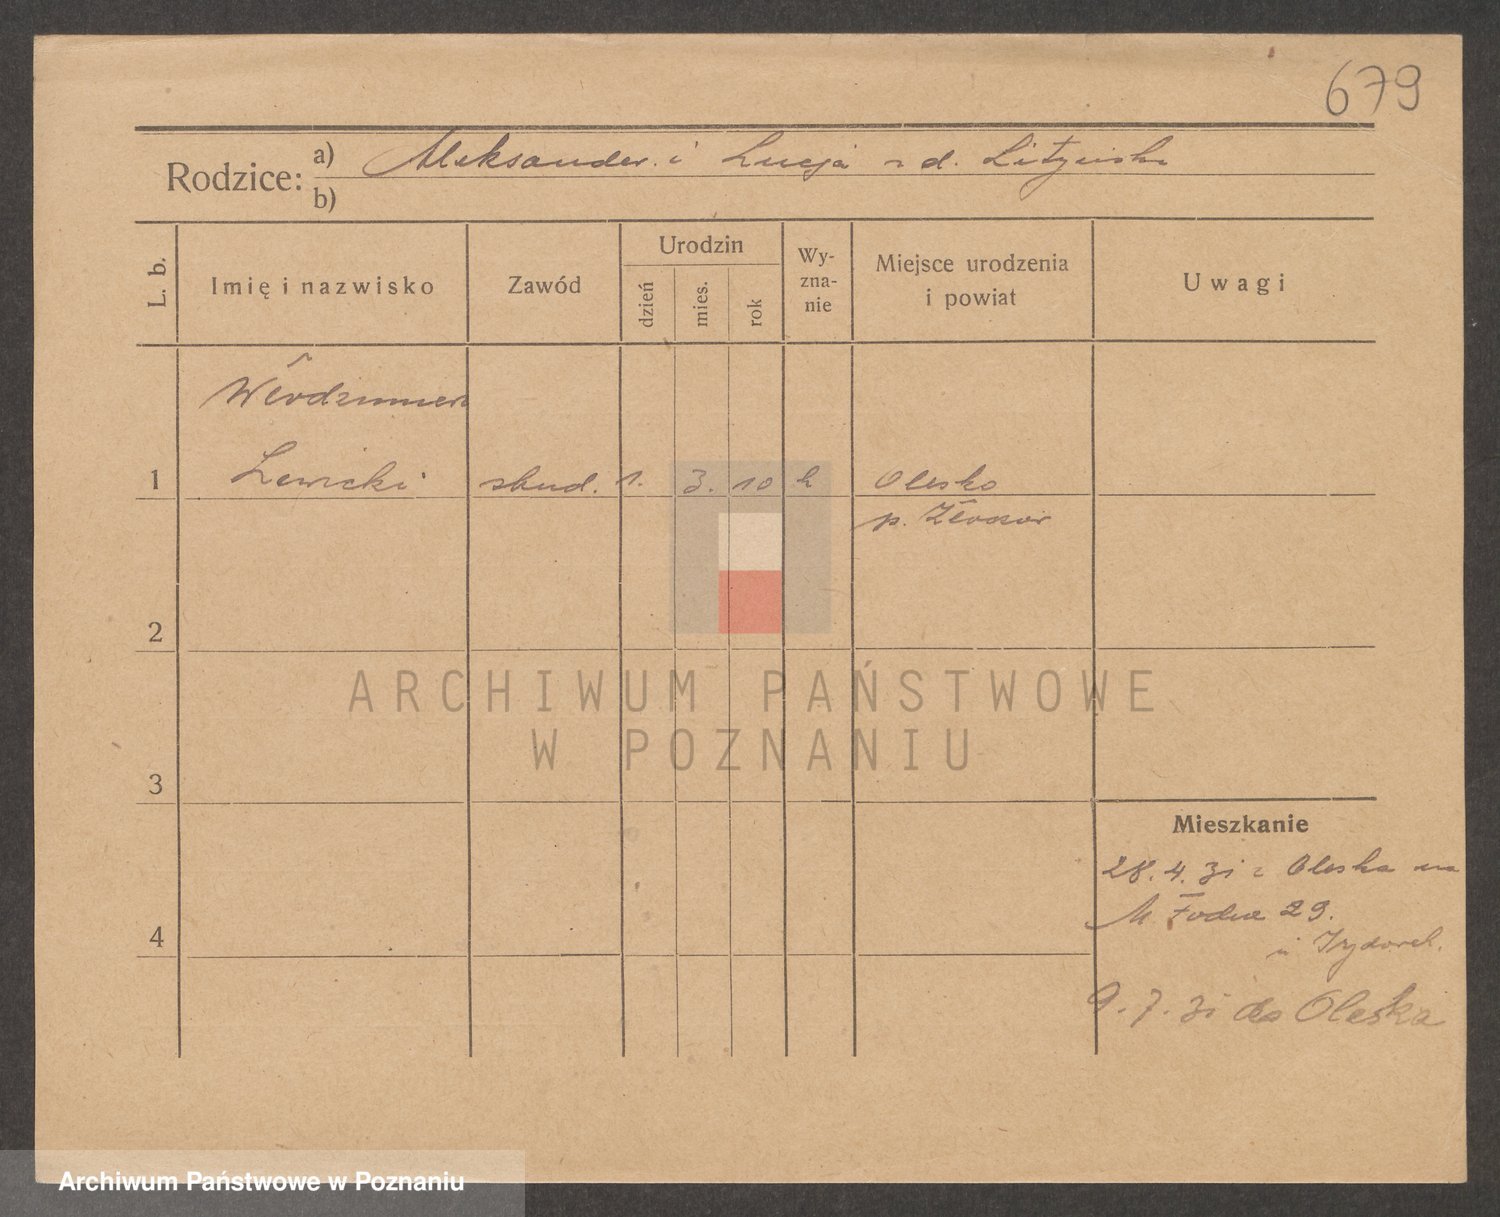 679
Rodzice: a) Aleksander i Lucja z d. Lityńska
b)
L. b.
Imię i nazwisko
Zawód
Urodzin
dzień
mies.
rok
Wy-
zna-
nie
Miejsce urodzenia
i powiat
Uwagi
Włodzimierz
1 Lewicki stud. 1. 3. 10 Olesko
p. Złoczów
2
3
4
ARCHIWUM PAŃSTWOWE
W POZNANIU
Mieszkanie
28.4.31 z Oleska na
29.
9.7.31 do Oleska
Archiwum Państwowe w Poznaniu